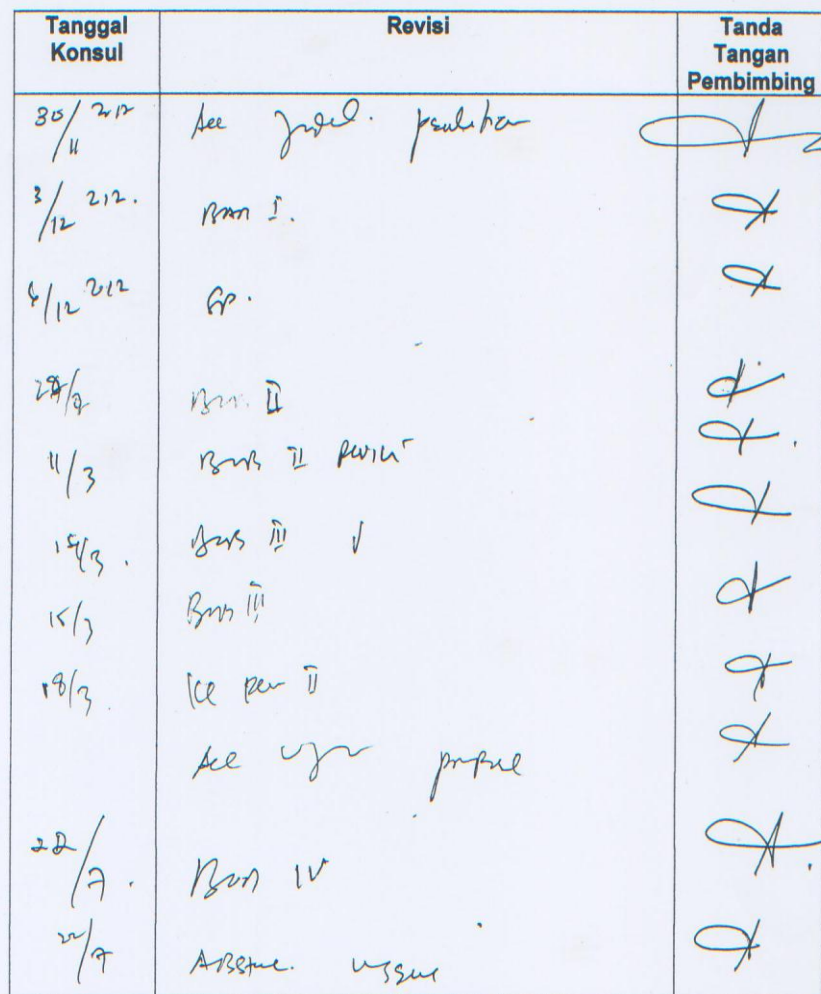 Tanggal Konsul Revisi Tanda Tangan Pembimbing
30/11 2012 Acc judul penelitian
3/12 2012. BAB I.
/12 2012
BAB II
11/3 BAB II revisi
15/3. BAB III
15/3 BAB III
18/3. Ke pem II
Acc ujian proposal
22/7. BAB IV
22/7 Abstrac